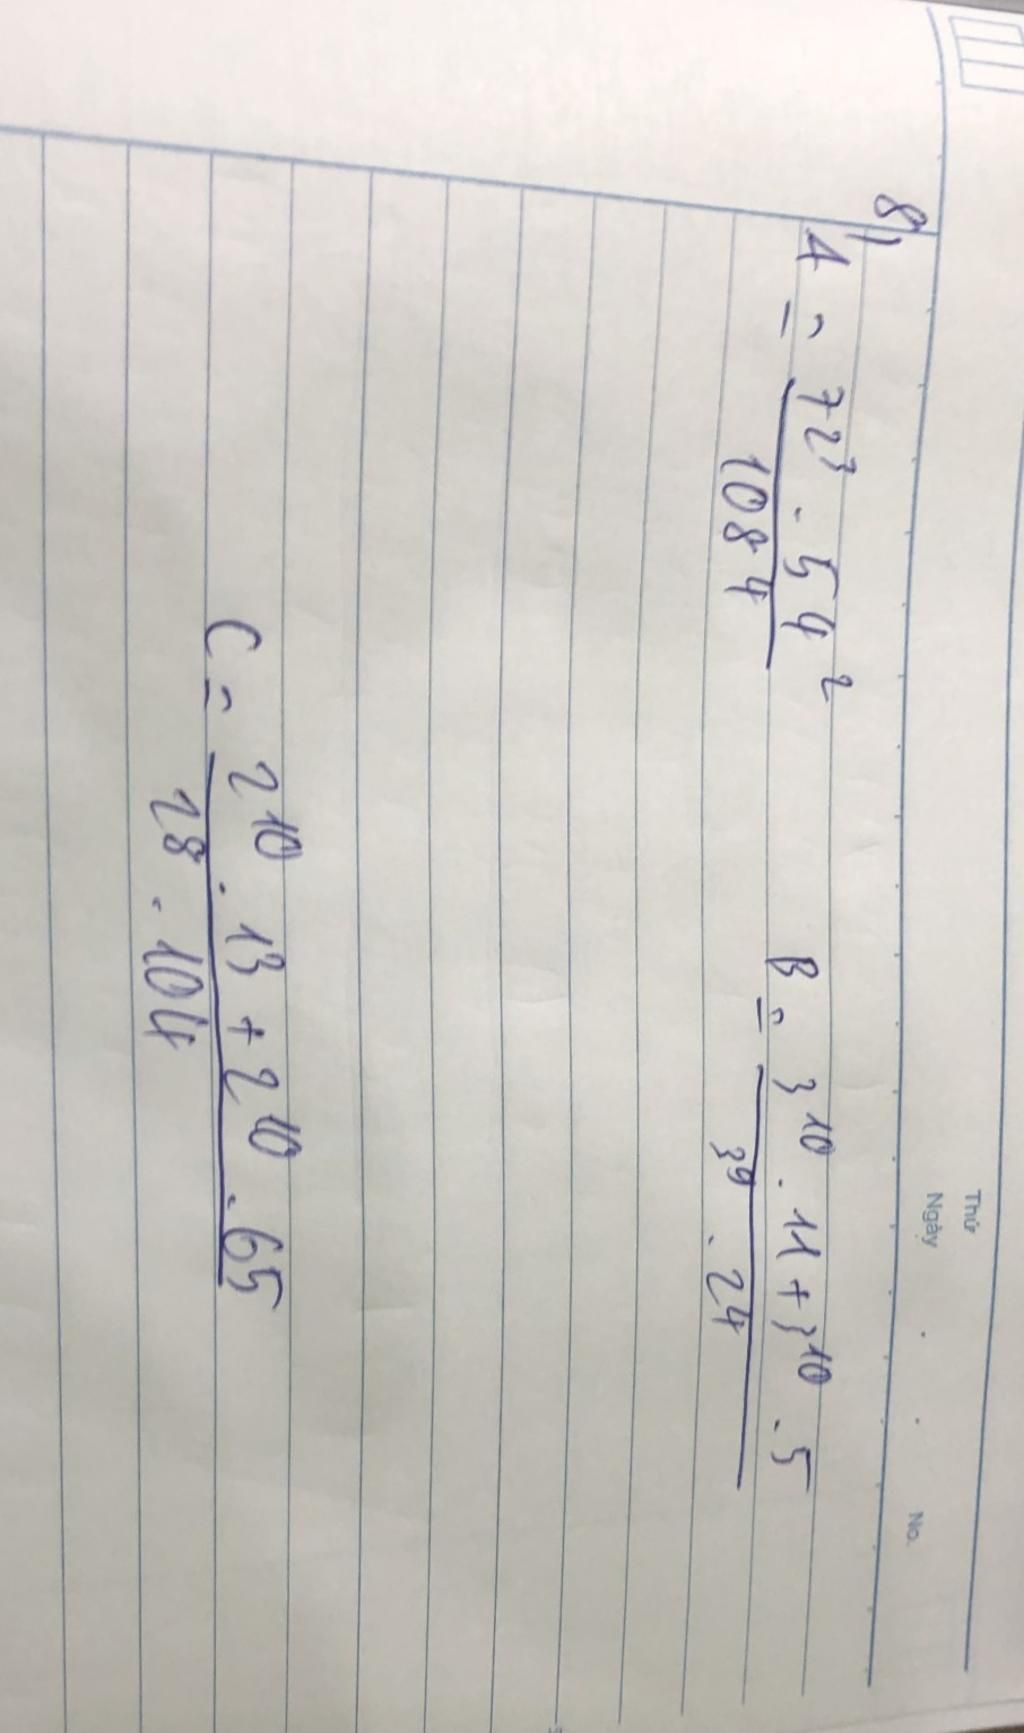 Thứ
Ngày . . No.
8)
A = 72³ . 54² / 108⁴
B = 3¹⁰ . 11 + 3¹⁰ . 5 / 3⁹ . 24
C = 2¹⁰ . 13 + 2¹⁰ . 65 / 2⁸ . 104